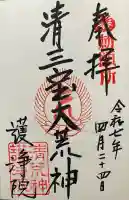 奉拝
令和七年
四月二十四日
清三宝大荒神
護浄院